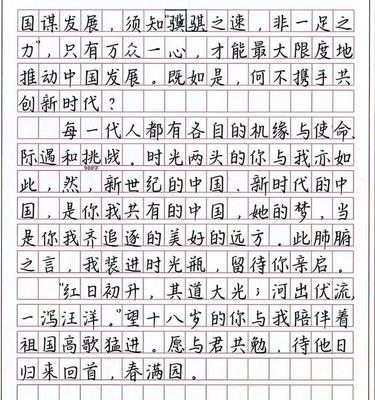 国谋发展，须知"骥骐之速，非一足之
力"，只有万众一心，才能最大限度地
推动中国发展。既如是，何不携手共
创新时代？
每一代人都有各自的机缘与使命，
际遇和挑战。时光两头的你与我亦如
此，然，新世纪的中国、新时代的中
国，是你我共有的中国，她的梦，当
是你我齐追逐的美好的远方。此肺腑
之言，我装进时光瓶，留待你亲启。
"红日初升，其道大光；河出伏流，
一泻汪洋。"望十八岁的你与我陪伴着
祖国高歌猛进。愿与君共勉，待他日
归来回首，春满园。